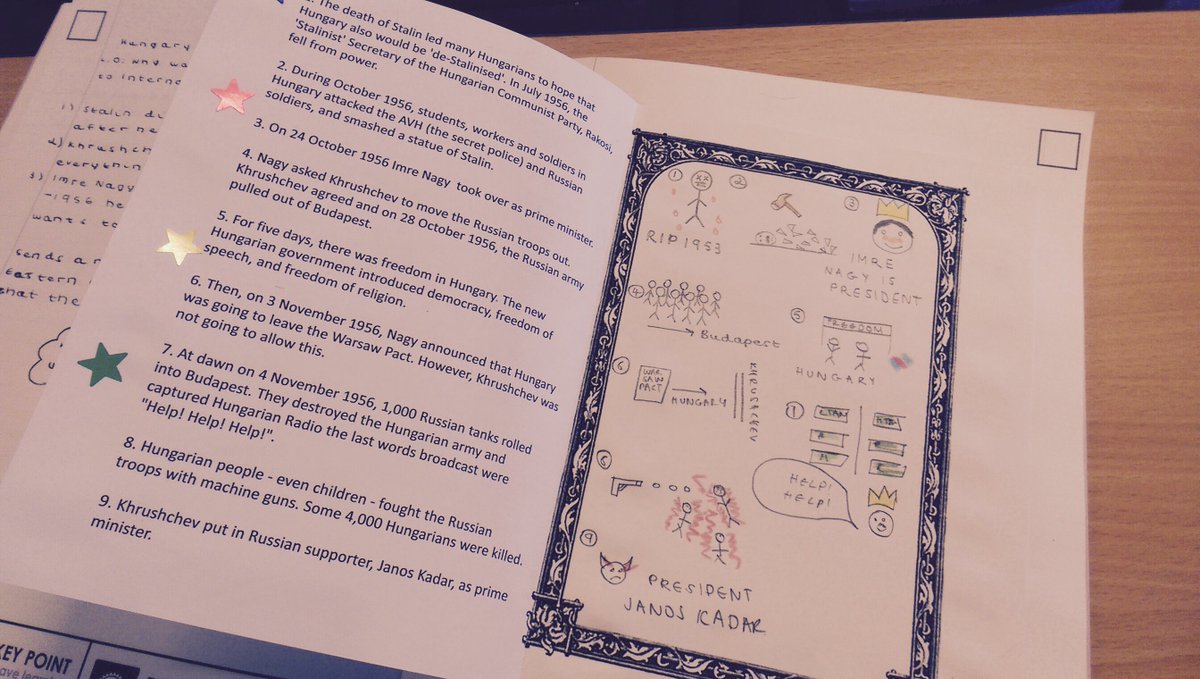 1. The death of Stalin led many Hungarians to hope that
Hungary also would be 'de-Stalinised'. In July 1956, the
'Stalinist' Secretary of the Hungarian Communist Party, Rakosi,
fell from power.
2. During October 1956, students, workers and soldiers in
Hungary attacked the AVH (the secret police) and Russian
soldiers, and smashed a statue of Stalin.
3. On 24 October 1956 Imre Nagy took over as prime minister.
4. Nagy asked Khrushchev to move the Russian troops out.
Khrushchev agreed and on 28 October 1956, the Russian army
pulled out of Budapest.
5. For five days, there was freedom in Hungary. The new
Hungarian government introduced democracy, freedom of
speech, and freedom of religion.
6. Then, on 3 November 1956, Nagy announced that Hungary
was going to leave the Warsaw Pact. However, Khrushchev was
not going to allow this.
7. At dawn on 4 November 1956, 1,000 Russian tanks rolled
into Budapest. They destroyed the Hungarian army and
captured Hungarian Radio the last words broadcast were
"Help! Help! Help!".
8. Hungarian people - even children - fought the Russian
troops with machine guns. Some 4,000 Hungarians were killed.
9. Khrushchev put in Russian supporter, Janos Kadar, as prime
minister.
Hungary
L.O: Why wa
to interne
1) Stalin di
after he
2) Khrushch
everythin
3) Imre Nagy
-1956 he
wants to
sends a
Eastern
that the
KEY POINT
1
RIP 1953
2
3
IMRE
NAGY IS
PRESIDENT
4
Budapest
5
FREEDOM
HUNGARY
6
WAR
SAW
PACT
HUNGARY
KHRUSHCHEV
HELP!
HELP!
8
9
PRESIDENT
JANOS KADAR